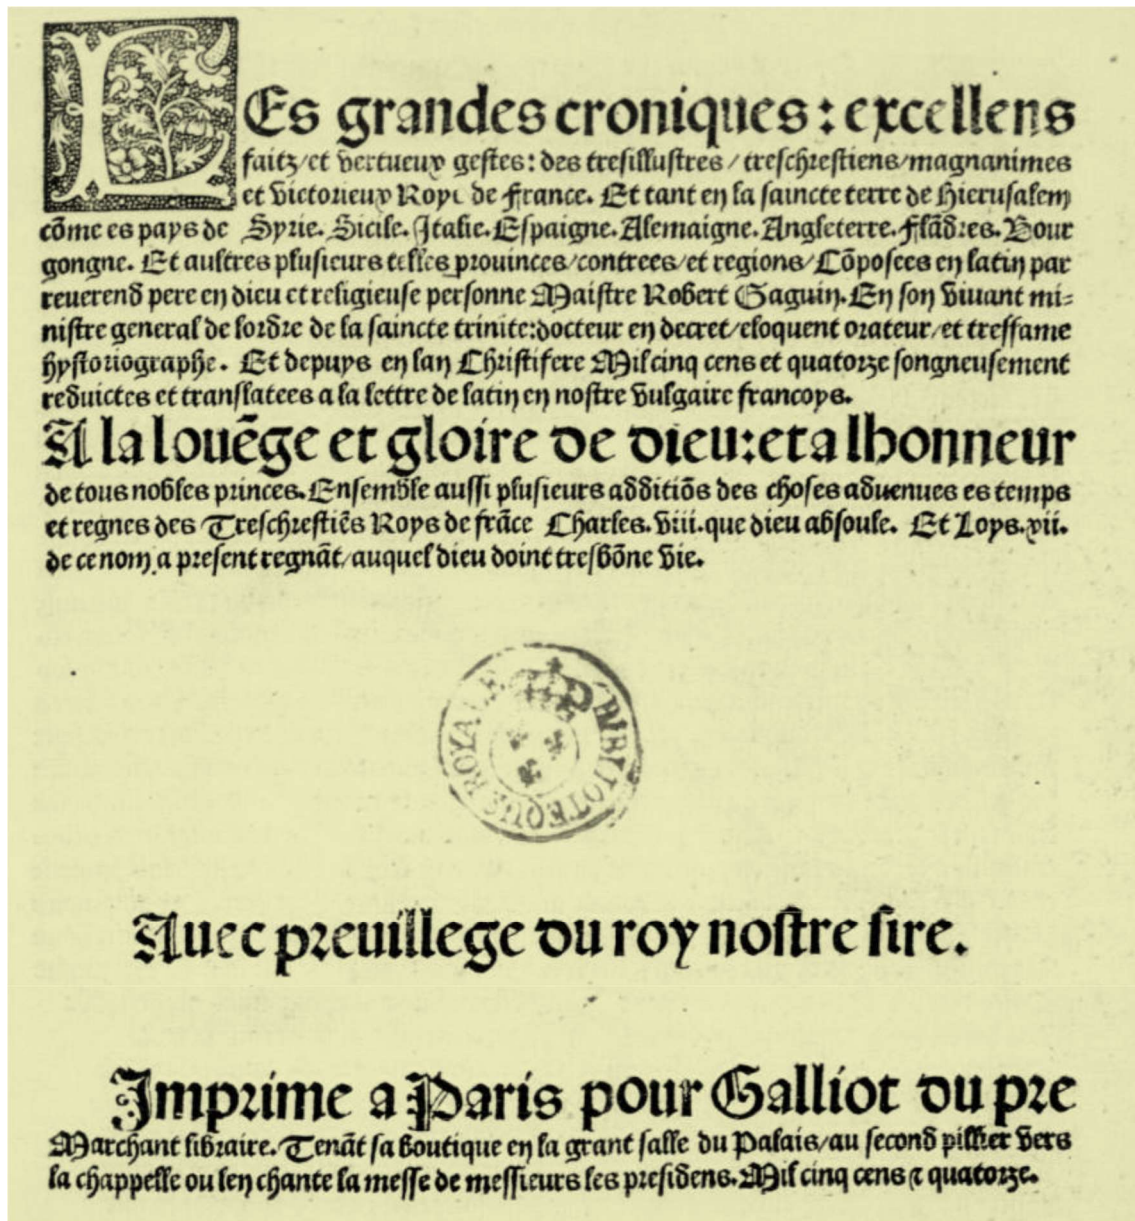 LEs grandes croniques: excellens
faitz/et vertueux gestes: des tresillustres/treschrestiens/magnanimes
et victorieux Roys de France. Et tant en la saincte terre de Hierusalem
cõme es pays de Syrie. Sicile. Italie. Espaigne. Alemaigne. Angleterre. Flãdres. Bour
gongne. Et aultres plusieurs telles prouinces/contrees/et regions/Cõposees en latin par
reuerend pere en dieu et religieuse personne Maistre Robert Gaguin. En son viuant mi-
nistre general de lordre de la saincte trinite:docteur en decret/eloquent orateur/et treffame
hystoriographe. Et depuys en lan Christifere Mil cinq cens et quatorze songneusement
reduictes et translatees a la lettre de latin en nostre vulgaire francoys.
A la louẽge et gloire de dieu:et a lhonneur
de tous nobles princes. Ensemble aussi plusieurs additiõs des choses aduenues es temps
et regnes des Treschrestiẽs Roys de frãce Charles. viii. que dieu absoule. Et Loys. xii.
de ce nom a present regnãt/auquel dieu doint tresbõne vie.
BIBLIOTEQUE ROYALE
Auec preuillege du roy nostre sire.
Imprime a Paris pour Galliot du pre
Marchant libraire. Tenãt sa boutique en la grant salle du Palais/au second pillier vers
la chappelle ou len chante la messe de messieurs les presidens. Mil cinq cens ⁊ quatorze.